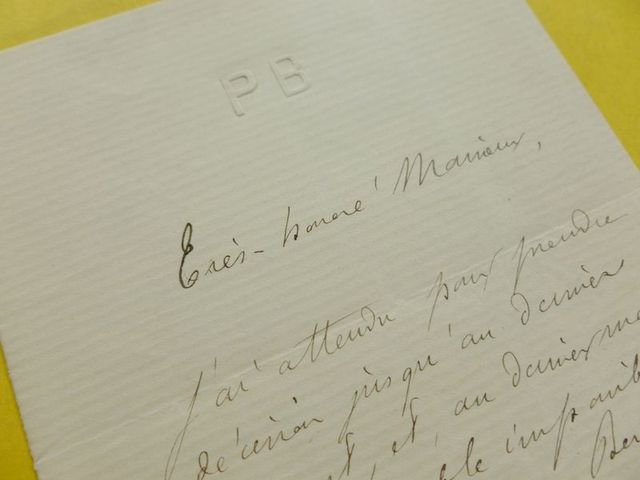 PB
Très-honoré Monsieur,
J'ai attendu pour prendre
décision jusqu'au dernier
et, au dernier mo
impossib